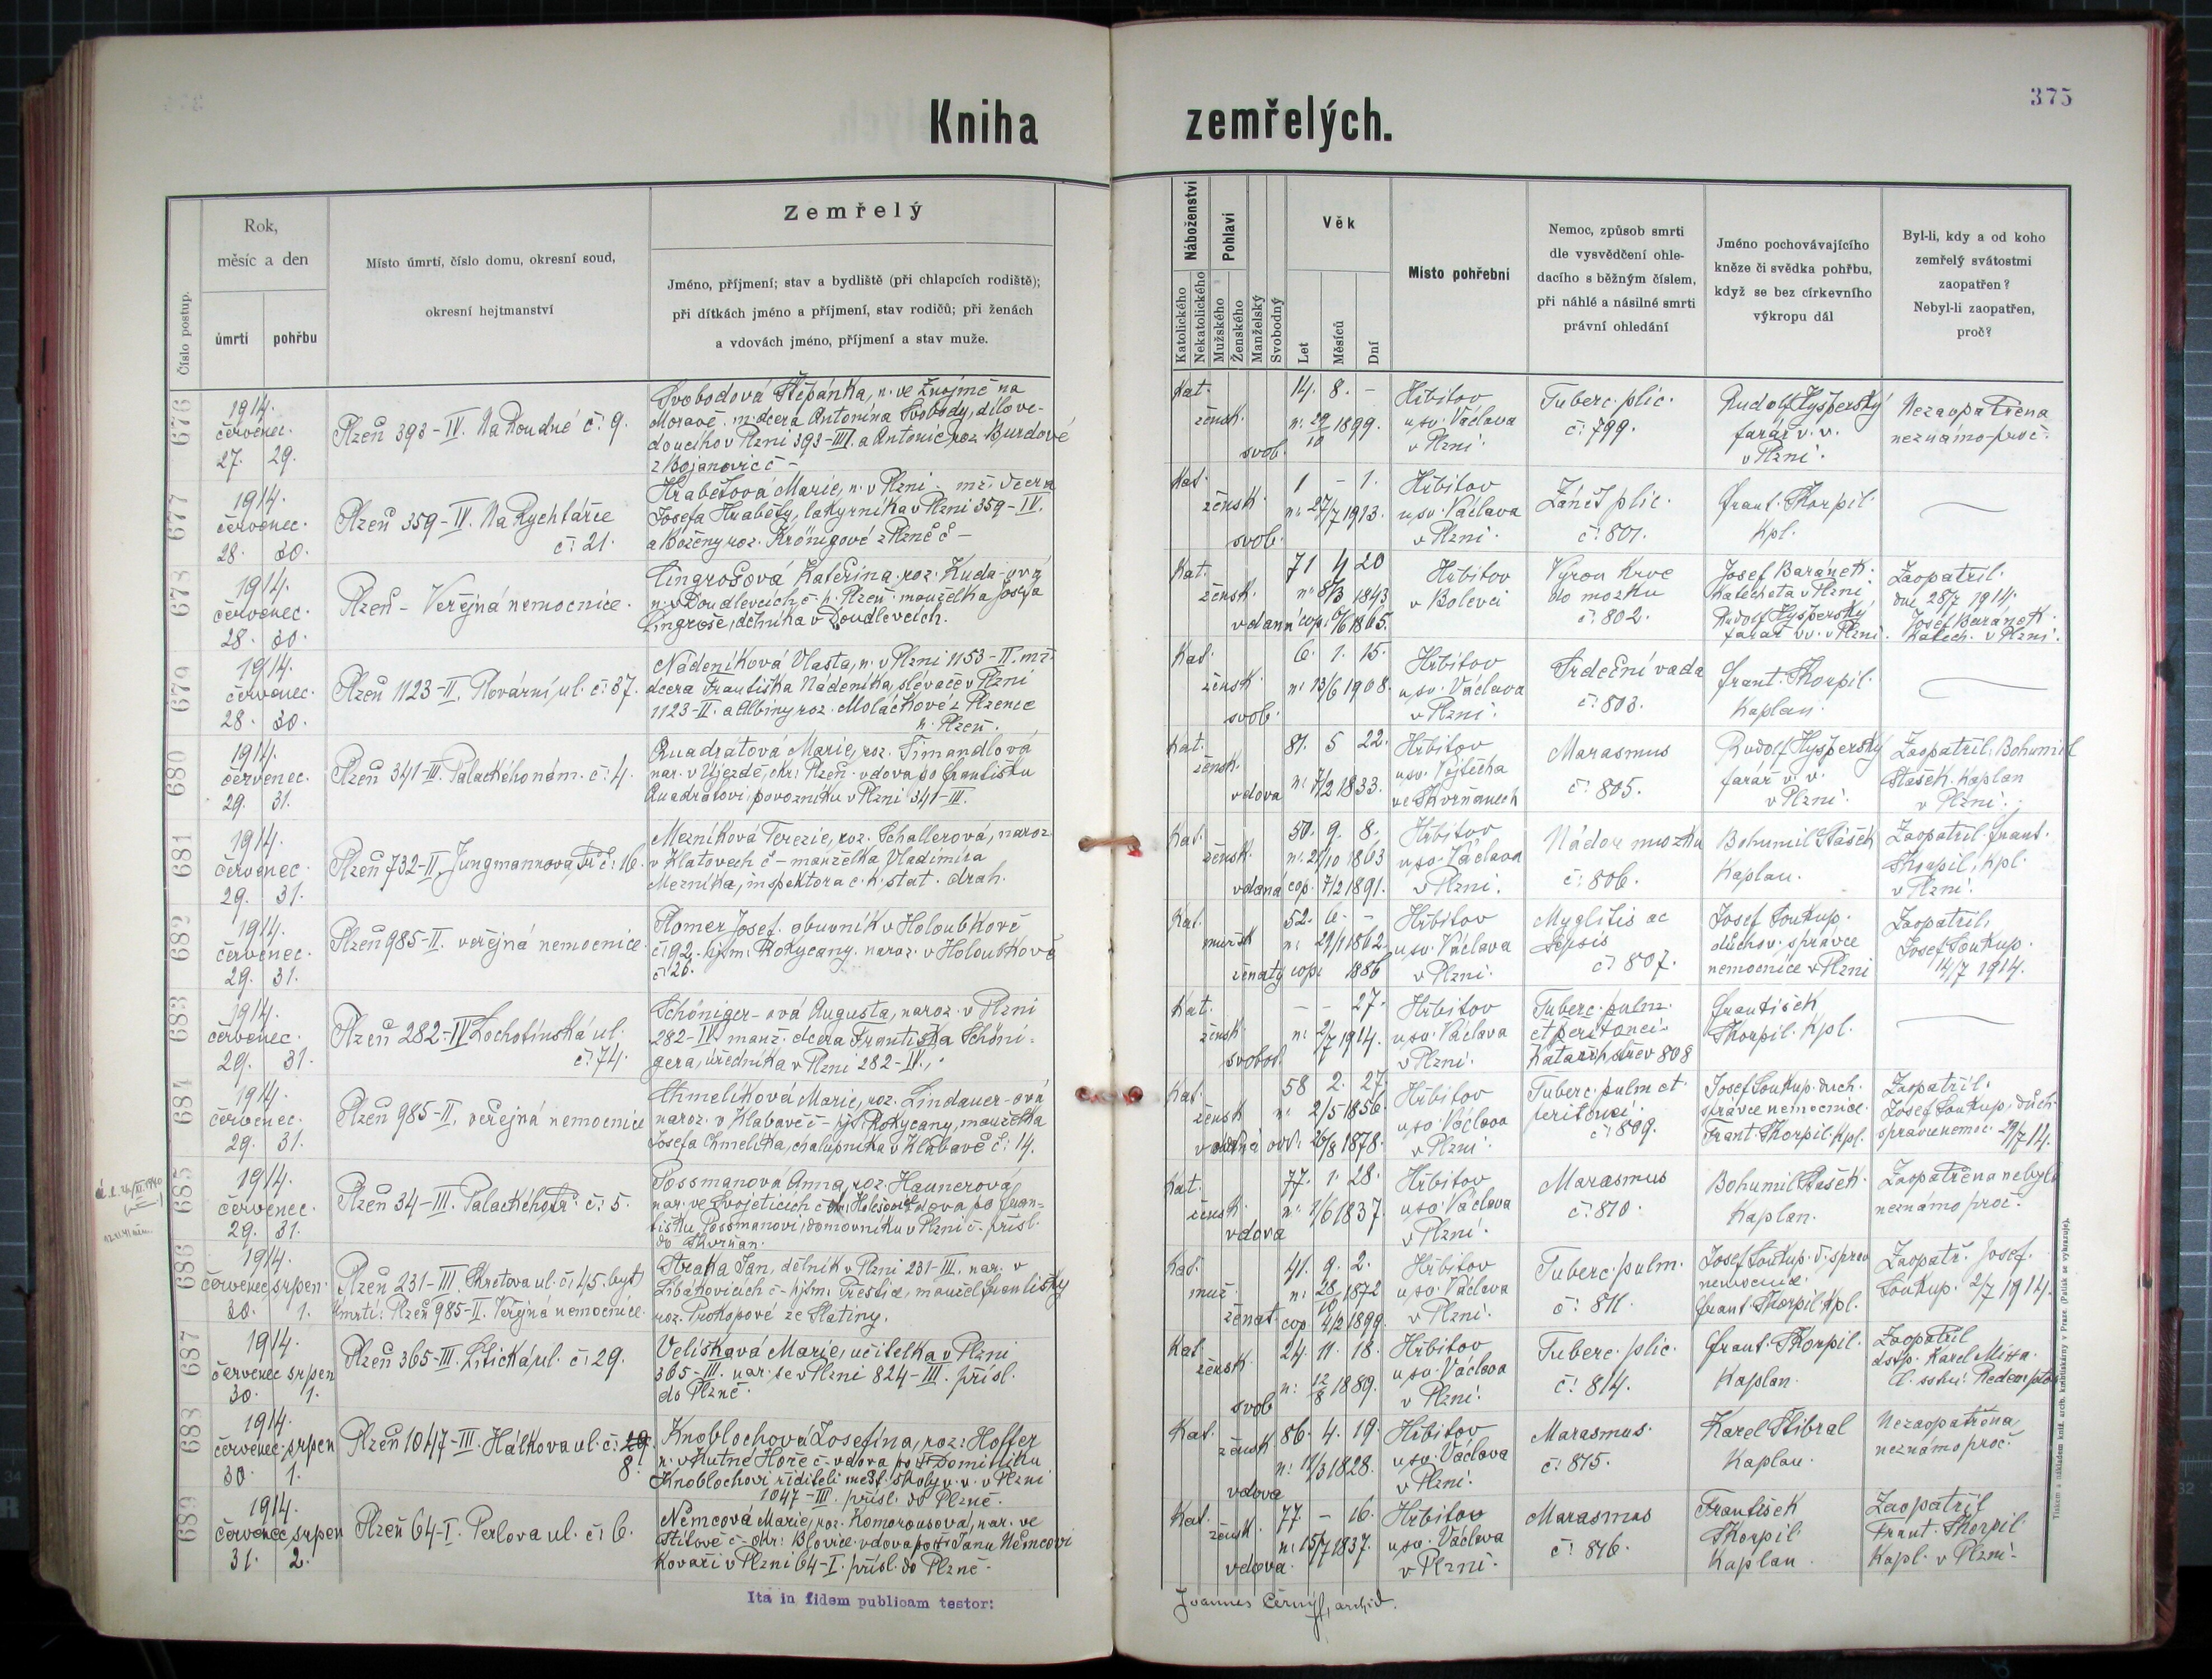 Kniha zemřelých.
375
Číslo postup.
Rok,
měsíc a den
úmrtí
pohřbu
Místo úmrtí, číslo domu, okresní soud,
okresní hejtmanství
Zemřelý
Jméno, příjmení; stav a bydliště (při chlapcích rodiště);
při dítkách jméno a příjmení, stav rodičů; při ženách
a vdovách jméno, příjmení a stav muže.
Náboženství
Katolického
Nekatolického
Pohlaví
Mužského
Ženského
Manželský
Svobodný
Věk
Let
Měsíců
Dní
Místo pohřební
Nemoc, způsob smrti
dle vysvědčení ohle-
dacího s běžným číslem,
při náhlé a násilné smrti
právní ohledání
Jméno pochovávajícího
kněze či svědka pohřbu,
když se bez církevního
výkropu dál
Byl-li, kdy a od koho
zemřelý svátostmi
zaopatřen?
Nebyl-li zaopatřen,
proč?
676
1914.
červenec.
27. 29.
Plzeň 393-IV. Na Roudné č. 9.
Svobodová Štěpánka, n. ve Znojmě na
Moravě. m. dcera Antonína Svobody, dílove-
doucího v Plzni 393-III. a Antonie roz. Burdové
z Bojanovic č -
Kat.
žensk.
svob.
14. 8. -
n. 29/10 1899.
Hřbitov
u sv. Václava
v Plzni.
Tuberc. plic.
č. 799.
Rudolf Hyšperský
farář v. v.
v Plzni.
Nezaopatřena
neznámo-proč.
677
1914.
červenec.
28. 30.
Plzeň 359-IV. Na Rychtářce
č. 21.
Hrabětová Marie, n. v Plzni. mž. dcera
Josefa Hraběty, lakýrníka v Plzni 359-IV.
a Boženy roz. Krönigové z Plzně č -
Kat.
žensk.
svob.
1 - 1.
n. 27/7 1913.
Hřbitov
u sv. Václava
v Plzni.
Zánět plic.
č. 801.
Frant. Škorpil.
kpl.
678
1914.
červenec.
28. 30.
Plzeň - Veřejná nemocnice.
Lingrošová Kateřina. roz. Kuda-ová
n. v Doudlevcích č. h. Plzeň. manželka Josefa
Lingroše, dělníka v Doudlevcích.
Kat.
žensk.
vdan
71 4 20
n. 8/3 1843
cop. 6/6 1865.
Hřbitov
v Bolevci
Výron krve
do mozku
č. 802.
Josef Baránek.
Katecheta v Plzni
Rudolf Hyšperský
farář vv. v Plzni.
Zaopatřil.
dne 28/7 1914.
Josef Baránek.
Katech. v Plzni.
679
1914.
červenec.
28. 30.
Plzeň 1123-II. Plovární ul. č. 37.
Nádeníková Vlasta, n. v Plzni 1153-II. mž.
dcera Františka Nádeníka, slévače v Plzni
1123-II. a Albiny roz. Moláčkové z Plzence
h. Plzeň.
Kat.
žensk.
svob.
6. 1. 15.
n. 13/6 1908.
Hřbitov
u sv. Václava
v Plzni.
Srdeční vada
č. 803.
Frant. Škorpil.
Kaplan.
680
1914.
červenec.
29. 31.
Plzeň 341-III. Palackého nám. č. 4.
Quadrátová Marie, roz. Timandlová
nar. v Újezdě, okr. Plzeň. vdova po Františku
Quadrátovi, povozníku v Plzni 341-III.
Kat.
žensk.
vdova
81. 5 22.
n. 7/2 1833.
Hřbitov
u sv. Vojtěcha
ve Skvrňanech
Marasmus
č. 805.
Rudolf Hyšperský
farář v. v.
v Plzni.
Zaopatřil. Bohumil
Stašek. Kaplan
v Plzni.
681
1914.
červenec.
29. 31.
Plzeň 732-II, Jungmannova tř. č. 16.
Mezníková Terezie, roz. Schallerová, naroz.
v Klatovech č - manželka Vladimíra
Mezníka, inspektora c. k. stat. drah.
Kat.
žensk.
vdaná
50. 9. 8.
n. 21/10 1863
cop. 7/2 1891.
Hřbitov
u sv. Václava
v Plzni.
Nádor mozku
č. 806.
Bohumil Stašek
Kaplan.
Zaopatřil. Frant.
Škorpil, kpl.
v Plzni.
682
1914.
červenec.
29. 31.
Plzeň 985-II. veřejná nemocnice.
Plomer Josef. obuvník v Holoubkově
č. 92. hjtm. Rokycany. naroz. v Holoubkově
č. 26.
Kat.
mužsk
ženatý
52. 6. -
n. 29/1 1862.
cop. 1886
Hřbitov
u sv. Václava
v Plzni.
Myglitis ac
sepsis
č. 807.
Josef Soukup.
duchov. správce
nemocnice v Plzni
Zaopatřil.
Josef Soukup.
14/7 1914.
683
1914.
červenec.
29. 31.
Plzeň 282-IV Lochotínská ul.
č. 74.
Schöniger-ová Augusta, naroz. v Plzni
282-IV. manž. dcera Františka Schöni-
gera, úředníka v Plzni 282-IV.,
Kat.
žensk.
svobod.
- - 27.
n. 2/7 1914.
Hřbitov
u sv. Václava
v Plzni.
Tuberc. pulm.
et peritonei.
Katarrh střev 808
František
Škorpil. kpl.
684
1914.
červenec.
29. 31.
Plzeň 985-II. veřejná nemocnice
Chmelíková Marie, roz. Lindauer-ová
naroz. v Hlabavě č - hjt. Rokycany, manželka
Josefa Chmelíka, chalupníka v Hlabavě č. 14.
Kat.
žensk
58 2. 27.
n. 2/5 1856.
odd. 26/8 1878.
Hřbitov
u sv. Václava
v Plzni.
Tuberc. pulm et
peritonei.
č. 809.
Josef Soukup. duch.
správce nemocnice.
Frant. Škorpil. kpl.
Zaopatřil.
Josef Soukup, duch.
správce nemoc. 29/7 14.
685
1914.
červenec.
29. 31.
Plzeň 34-III. Palackého tř. č. 5.
Possmanová Anna, roz. Haunerová,
nar. ve Svojeticích č vdova po Fran-
tišku Possmanovi, domovníku v Plzni č - přísl.
do Skvrňan.
Kat.
žensk.
vdova
77. 1. 28.
n. 1/6 1837.
Hřbitov
u sv. Václava
v Plzni.
Marasmus
č. 810.
Bohumil Stašek.
Kaplan.
Zaopatřena nebyla
neznámo proč.
686
1914.
červenec, srpen.
30. 1.
Plzeň 231-III. Škrétova ul. č. 45. byt)
úmrtí: Plzeň 985-II. Veřejná nemocnice.
Straka Jan, dělník v Plzni 231-III. nar. v
Libákovicích č - hjtm. Přeštic, manžel Františky
roz. Prokopové ze Slatiny.
Kat.
muž.
ženat.
41. 9. 2.
n. 28/10 1872
cop 4/2 1899.
Hřbitov
u sv. Václava
v Plzni.
Tuberc. pulm.
č. 811.
Josef Soukup. d. správ
nemocnice.
Frant. Škorpil kpl.
Zaopatř. Josef.
Soukup. 2/7 1914.
687
1914.
červenec srpen
30. 1.
Plzeň 365-III. Litická ul. č. 29.
Velíšková Marie, učitelka v Plzni
365-III. nar. se v Plzni 824-III. přísl.
do Plzně.
Kat.
žensk.
svob
24. 11. 18.
n. 12/8 1889.
Hřbitov
u sv. Václava
v Plzni.
Tuberc. plic.
č. 814.
Frant. Škorpil.
Kaplan.
Zaopatřil
dstp. Karel Mitta.
688
1914.
červenec. srpen
30. 1.
Plzeň 1047-III. Hálkova ul. č.
8.
Knoblochová Josefina, roz. Hoffer
n. v Kutné Hoře č - vdova po Dominiku
Knoblochovi řediteli mešť. školy v. v. v Plzni
1047-III. přísl. do Plzně.
Kat.
žensk
vdova
86. 4. 19.
n. 11/3 1828.
Hřbitov
u sv. Václava
v Plzni.
Marasmus.
č. 815.
Karel Stibral
Kaplan.
Nezaopatřena,
neznámo proč.
689
1914.
červenec, srpen
31. 2.
Plzeň 64-I. Perlova ul. č. 6.
Němcová Marie, roz. Komorousová, nar. ve
Štítově č - okr. Blovice. vdova po Janu Němcovi
kováři v Plzni 64-I. přísl. do Plzně.
Kat.
žensk.
vdova.
77 - 16.
n. 15/7 1837.
Hřbitov
u sv. Václava
v Plzni.
Marasmus
č. 816.
František
Škorpil
Kaplan.
Zaopatřil
Frant. Škorpil.
Kapl. v Plzni.
Ita in fidem publicam testor:
Joannes Černý, archid.